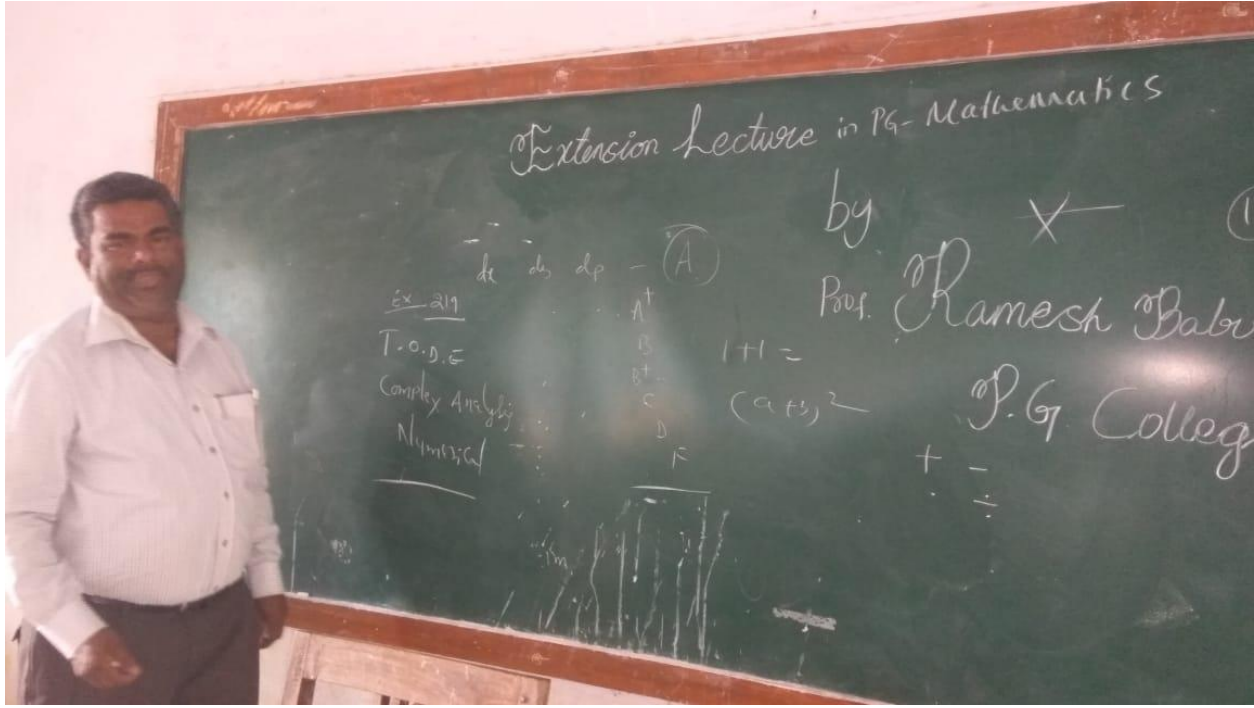 Extension Lecture in PG- Mathematics
by
Prof. Ramesh Babu
P.G College
dx dy dp - A
Ex 219
T.O.D.E
Complex Analysis
Numerical
A+
B
B+
C
D
F
1+1=
(a+b)2
+ -
. ÷